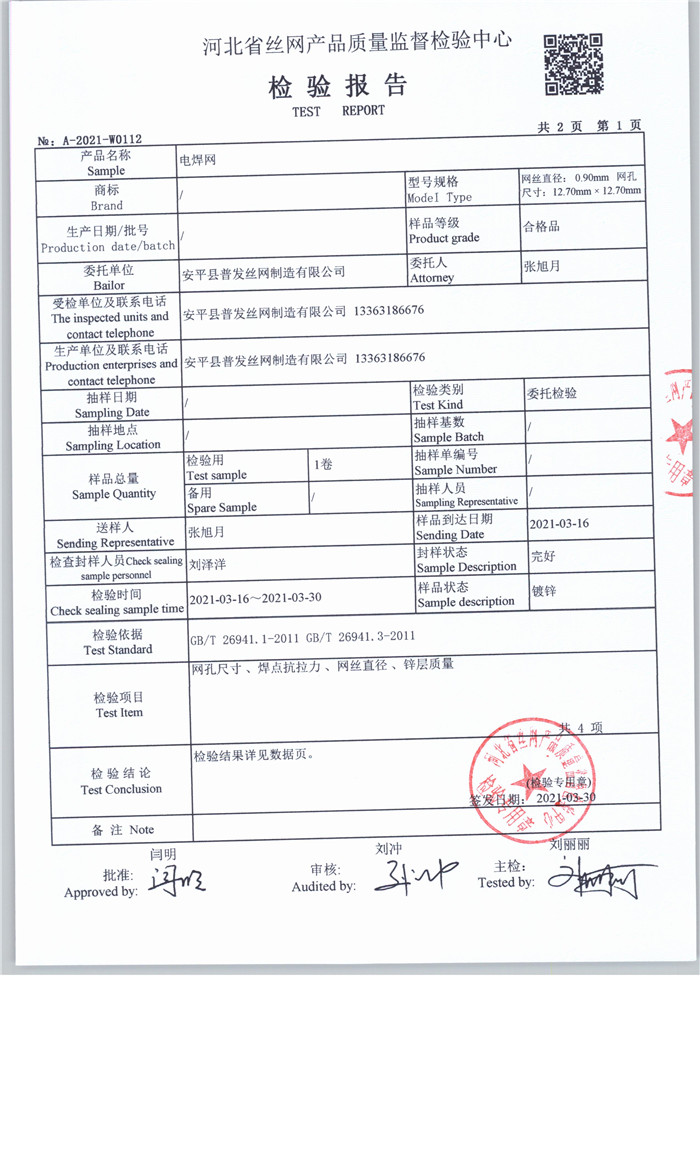 河北省丝网产品质量监督检验中心
检验报告
TEST REPORT
№: A-2021-W0112
共 2 页 第 1 页
产品名称
Sample
电焊网
商标
Brand
/
型号规格
Model Type
网丝直径: 0.90mm 网孔
尺寸: 12.70mm × 12.70mm
生产日期/批号
Production date/batch
/
样品等级
Product grade
合格品
委托单位
Bailor
安平县普发丝网制造有限公司
委托人
Attorney
张旭月
受检单位及联系电话
The inspected units and
contact telephone
安平县普发丝网制造有限公司 13363186676
生产单位及联系电话
Production enterprises and
contact telephone
安平县普发丝网制造有限公司 13363186676
抽样日期
Sampling Date
/
检验类别
Test Kind
委托检验
抽样地点
Sampling Location
/
抽样基数
Sample Batch
/
样品总量
Sample Quantity
检验用
Test sample
1卷
抽样单编号
Sample Number
/
备用
Spare Sample
/
抽样人员
Sampling Representative
/
送样人
Sending Representative
张旭月
样品到达日期
Sending Date
2021-03-16
检查封样人员Check sealing
sample personnel
刘泽洋
封样状态
Sample Description
完好
检验时间
Check sealing sample time
2021-03-16～2021-03-30
样品状态
Sample description
镀锌
检验依据
Test Standard
GB/T 26941.1-2011 GB/T 26941.3-2011
检验项目
Test Item
网孔尺寸、焊点抗拉力、网丝直径、锌层质量
共 4 项
检验结论
Test Conclusion
检验结果详见数据页。
(检验专用章)
签发日期: 2021-03-30
备 注 Note
闫明
批准:
Approved by:
闫明
刘冲
审核:
Audited by:
刘冲
刘丽丽
主检:
Tested by:
刘丽丽
河北省丝网产品质量监督检验中心
检验专用章